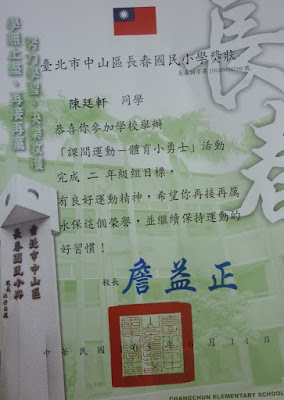 臺北市中山區長春國民小學獎狀
陳廷軒 同學
恭喜你參加學校舉辦
「課間運動－體育小勇士」活動
完成 二 年級組目標，
有良好運動精神，希望你再接再厲
永保這個榮譽，並繼續保持運動的
好習慣！
校長 詹益正
中華民國
月14日
長春
學無止盡，再接再厲
臺北市中山區
長春國民小學
CHANGCHUN ELEMENTARY SCHOOL